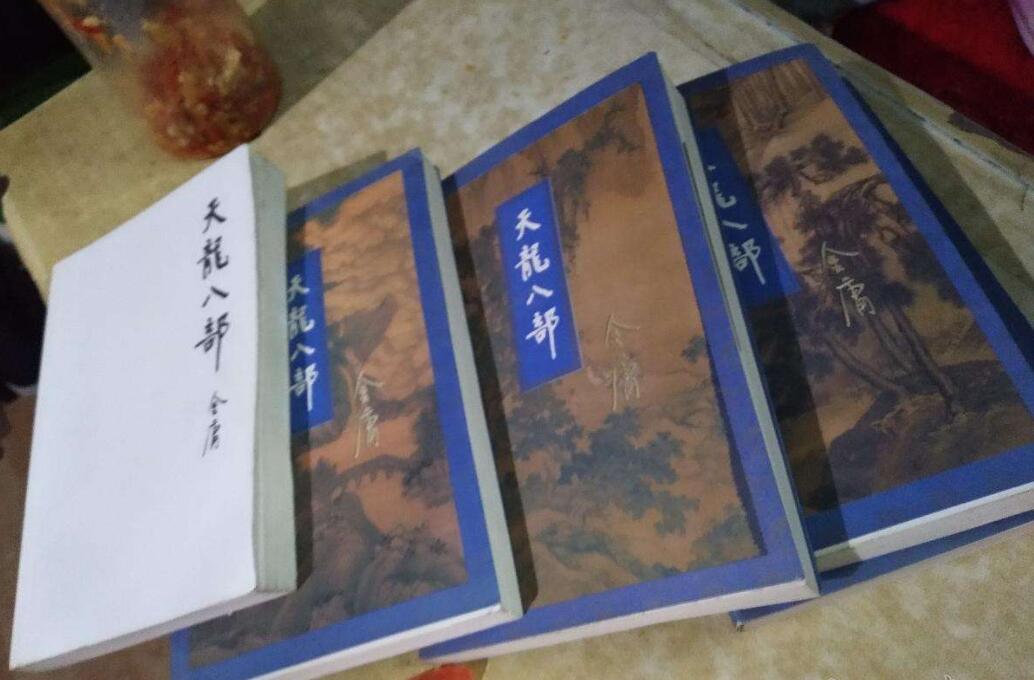 天龍八部
金庸
天龍八部
金庸
天龍八部
金庸
龍八部
金庸